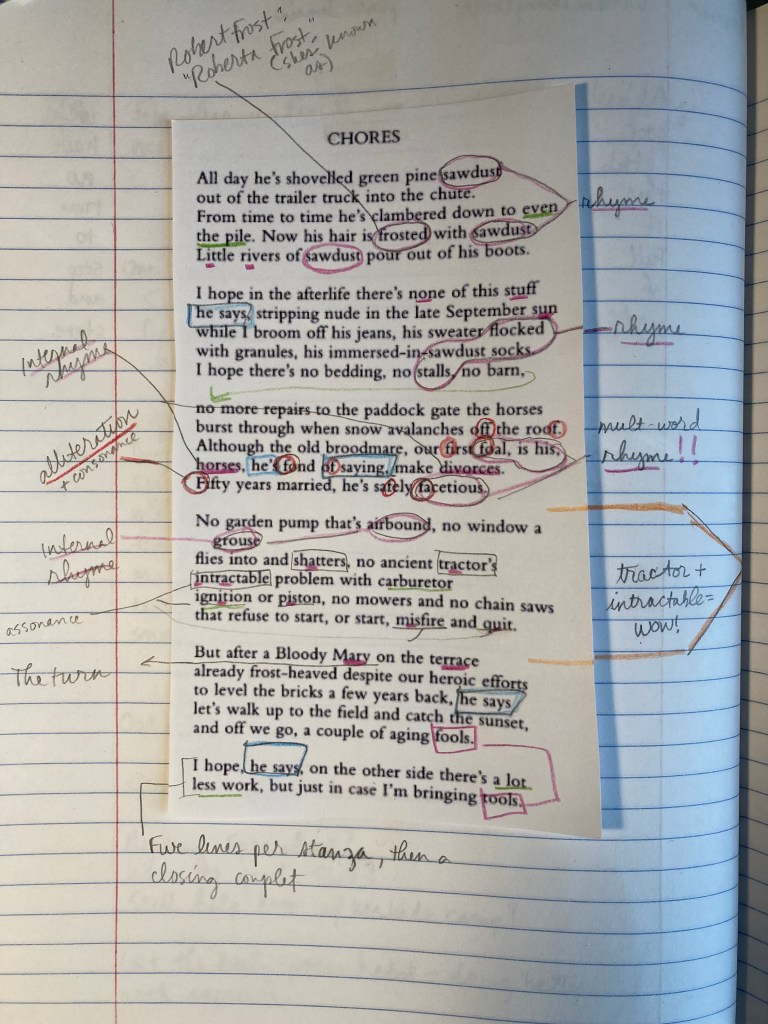 Robert Frost":
"Roberta Frost"
(she's known
as)
CHORES
All day he's shovelled green pine sawdust
out of the trailer truck into the chute.
From time to time he's clambered down to even
the pile. Now his hair is frosted with sawdust.
Little rivers of sawdust pour out of his boots.
rhyme
I hope in the afterlife there's none of this stuff
he says, stripping nude in the late September sun
while I broom off his jeans, his sweater flocked
with granules, his immersed-in-sawdust socks.
I hope there's no bedding, no stalls, no barn,
rhyme
Internal
rhyme
no more repairs to the paddock gate the horses
burst through when snow avalanches off the roof.
Although the old broodmare, our first foal, is his,
horses, he's fond of saying, make divorces.
Fifty years married, he's safely facetious.
alliteration
+ consonance
mult-word
rhyme!!
No garden pump that's airbound, no window a
grouse
flies into and shatters, no ancient tractor's
intractable problem with carburetor
ignition or piston, no mowers and no chain saws
that refuse to start, or start, misfire and quit.
Internal
rhyme
assonance
tractor +
intractable =
wow!
The turn
But after a Bloody Mary on the terrace
already frost-heaved despite our heroic efforts
to level the bricks a few years back, he says
let's walk up to the field and catch the sunset,
and off we go, a couple of aging fools.
I hope, he says, on the other side there's a lot
less work, but just in case I'm bringing tools.
Five lines per stanza, then a
closing couplet